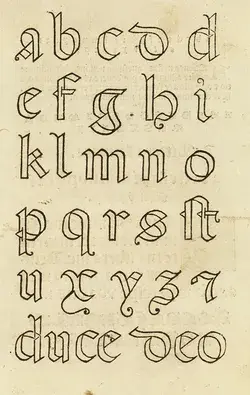 a b c d d
e f g h i
k l m n o
p q r s st
u x y z ⁊
duce deo